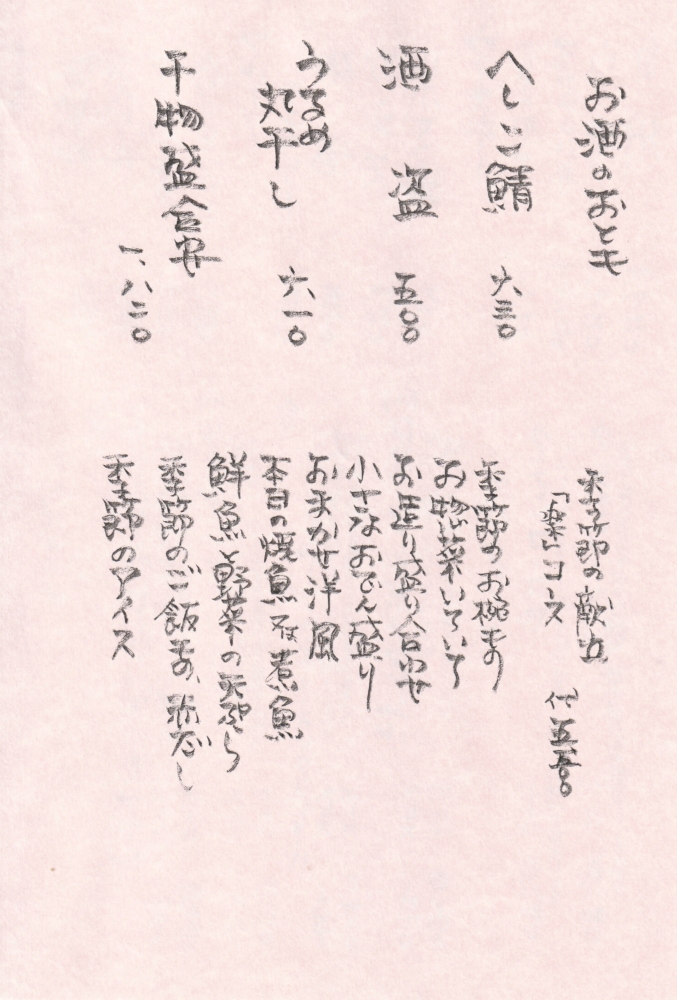 お酒のおとも
へしこ鯖 六三〇
酒盗 五〇〇
うるめ
丸干し 六一〇
干物盛合安
一、八二〇
季節の献立
「楽」コース 代 五五〇〇
季節のお椀もの
お惣菜いろいろ
お造り盛り合わせ
小さなおでん盛り
おまかせ洋風
本日の焼魚又は煮魚
鮮魚と野菜の天ぷら
季節のご飯もの、
季節のアイス